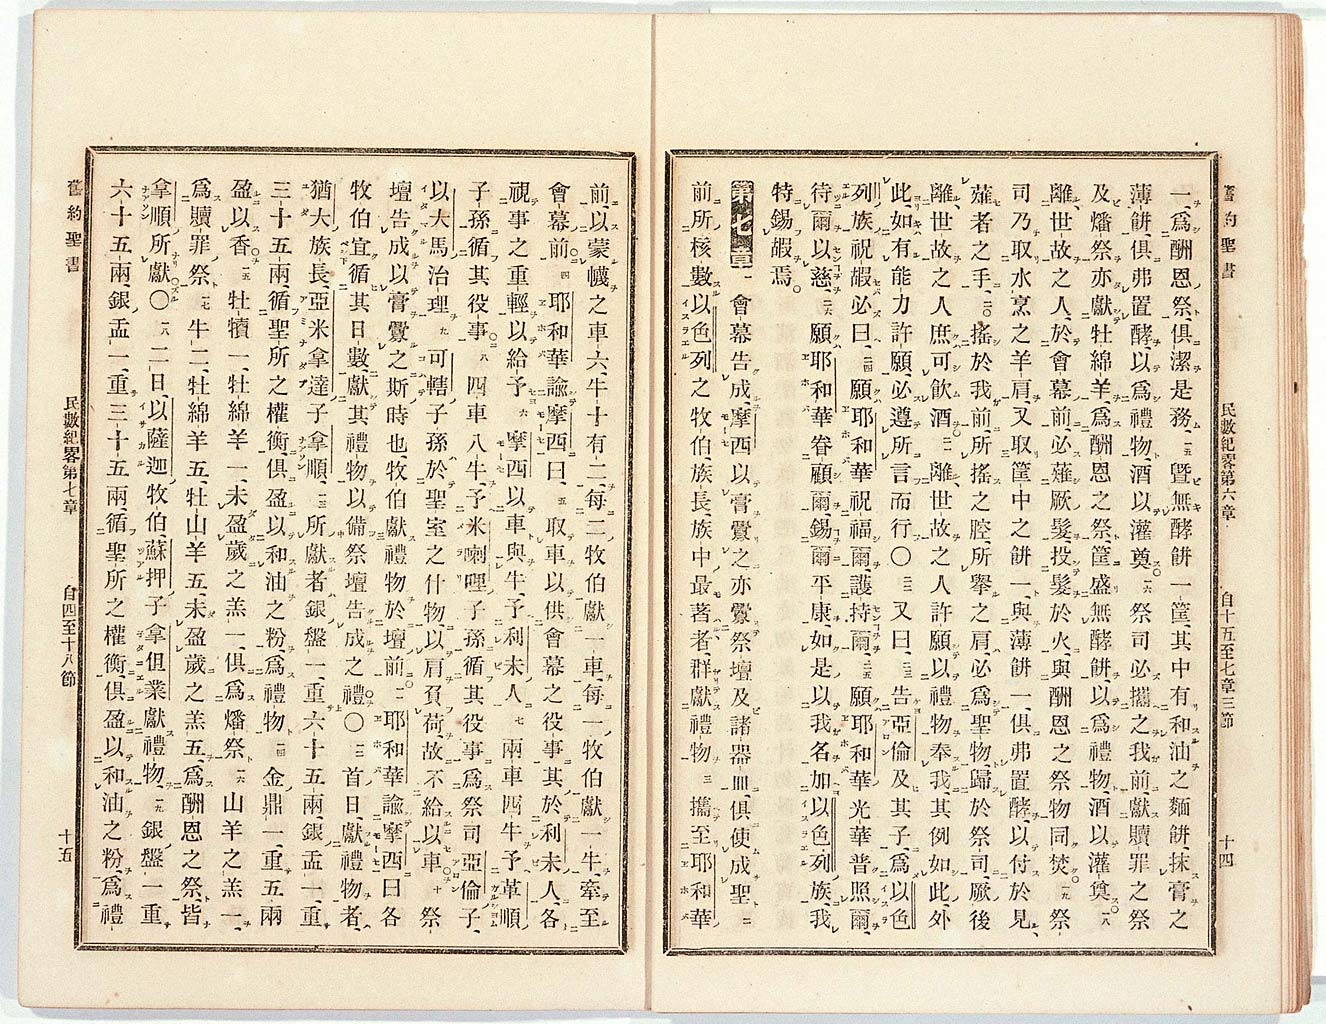 舊約聖書 民數紀畧第六章 自十五至七章三節 十四
一、爲酬恩祭、俱潔是務、一五曁無酵餅一筐、其中有和油之麵餅、抹膏之
薄餅、俱弗置酵、以爲禮物、酒以灌奠、一六祭司必攜之我前、獻贖罪之祭
及燔祭、亦獻牡綿羊、爲酬恩之祭、筐盛無酵餅、以爲禮物、酒以灌奠、一八
離世故之人、於會幕前、必薙厥髮、投髮於火、與酬恩之祭物同焚、一九祭
司乃取水烹之羊肩、又取筐中之餅一、與薄餅一、俱弗置酵、以付於見
薙者之手、二〇搖於我前、所搖之腔、所擧之肩、必爲聖物、歸於祭司、厥後
離世故之人、庶可飮酒、二一離世故之人許願、以禮物奉我、其例如此、外
此如有能力許願、必遵所言而行〇二二又曰、二三告亞倫及其子、爲以色
列族祝嘏、必曰、二四願耶和華祝福爾、護持爾、二五願耶和華光華普照爾、
待爾以慈、二六願耶和華眷顧爾、錫爾平康、如是以我名加以色列族、我
特錫嘏焉。
第七章一會幕吿成、摩西以膏釁之、亦釁祭壇及諸器皿、俱使成聖、二
前所核數以色列之牧伯、族長、族中最著者、群獻禮物、三攜至耶和華
前、以蒙幭之車六、牛十有二、每二牧伯獻一車、每一牧伯獻一牛、牽至
會幕前、四耶和華諭摩西曰、五取車以供會幕之役事、其於利未人、各
視事之重輕以給予、六摩西以車與牛、予利未人、七兩車四牛、予革順
子孫、循其役事、八四車八牛、予米喇哩子孫、循其役事、爲祭司亞倫子、
以大馬治理、九可轄子孫、於聖室之什物、以肩負荷、故不給以車、十祭
壇告成、以膏釁之、斯時也、牧伯獻禮物於壇前、一一耶和華諭摩西曰、各
牧伯宜循其日數、獻其禮物、以備祭壇告成之禮〇一二首日、獻禮物者、
猶大族長、亞米拿達子拿順、一三所獻者銀盤一、重六十五兩、銀盂一、重
三十五兩、循聖所之權衡、俱盈以和油之粉、爲禮物、一四金鼎一、重五兩
盈以香、一五牡犢一、牡綿羊一、未盈歲之羔一、俱爲燔祭、一六山羊之羔一、
爲贖罪祭、一七牛二、牡綿羊五、牡山羊五、未盈歲之羔五、爲酬恩之祭、皆
拿順所獻〇一八二日、以薩迦牧伯、蘇押子拿但業獻禮物、一九銀盤一、重
六十五兩、銀盂一、重三十五兩、循聖所之權衡、俱盈以和油之粉、爲禮
舊約聖書 民數紀畧第七章 自四至十八節 十五